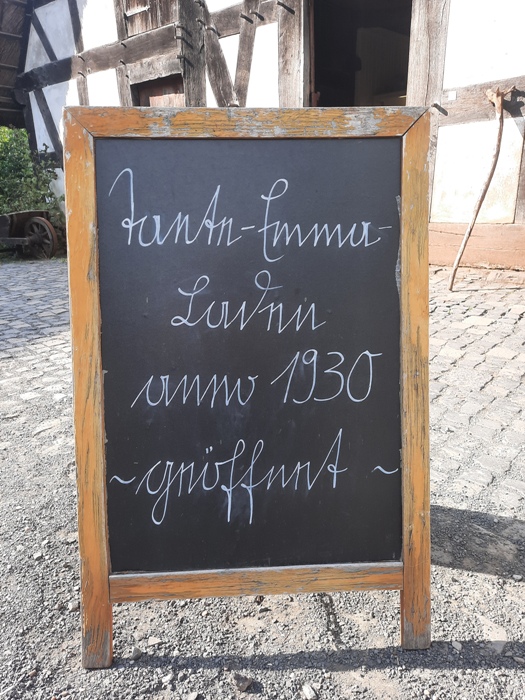 Tante-Emma-
Laden
anno 1930
~geöffnet~